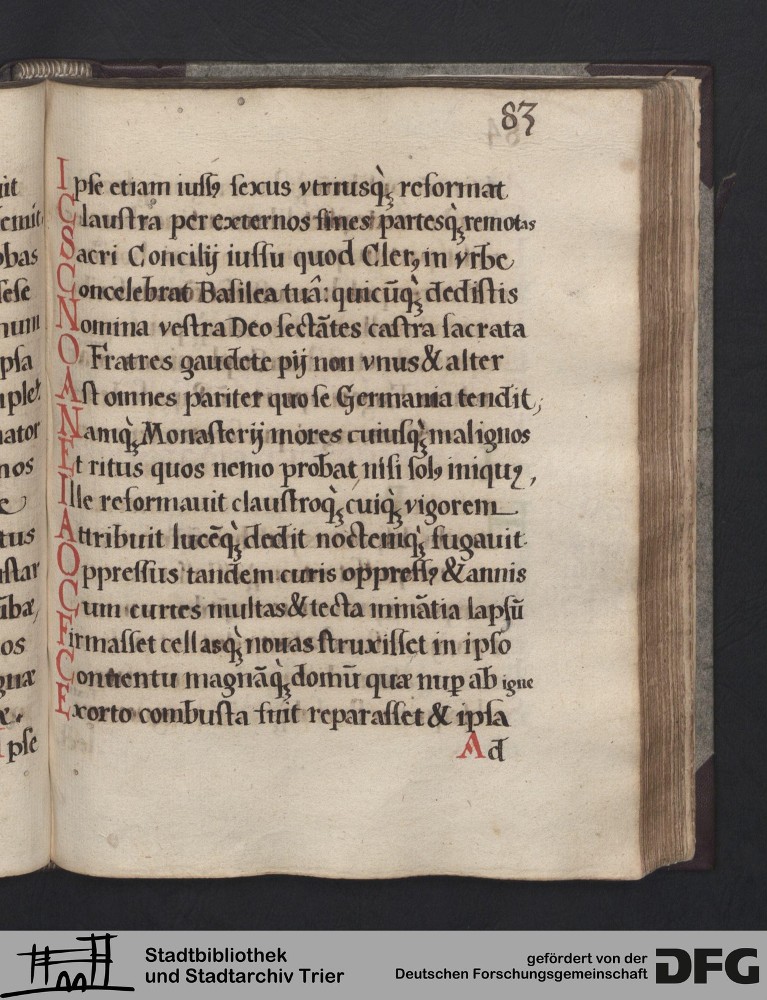 83
Ipse etiam iussꝰ sexus vtriusq́ꝫ reformat
Claustra per externos fines partesq́ꝫ remotas
Sacri Concilij iussu quod Clerꝰ in vrbe
Concelebrat Basilea tuâ: quicūq́ꝫ dedistis
Nomina vestra Deo sectātes castra sacrata
O Fratres gaudete pij non vnus & alter
Ast omnes pariter quo se Germania tendit,
Namq́ꝫ Monasterij mores cuiusq́ꝫ malignos
Et ritus quos nemo probat nisi solꝰ iniquꝰ,
Ille reformauit claustroq́ꝫ cuiq́ꝫ vigorem
Attribuit lucēq́ꝫ dedit noctemq́ꝫ fugauit.
Oppressus tandem curis oppressꝰ & annis
Cum curtes multas & tecta minātia lapsū
Firmasset cellasq́ꝫ nouas struxisset in ipso
Conuentu magnāq́ꝫ domū quæ nuꝑ ab igne
Exorto combusta fuit reparasset & ipsa
Ad
uit
obas
sese
num
ipsa
nator
nos
tus
os
Ipse
Stadtbibliothek
und Stadtarchiv Trier
gefördert von der
Deutschen Forschungsgemeinschaft
DFG